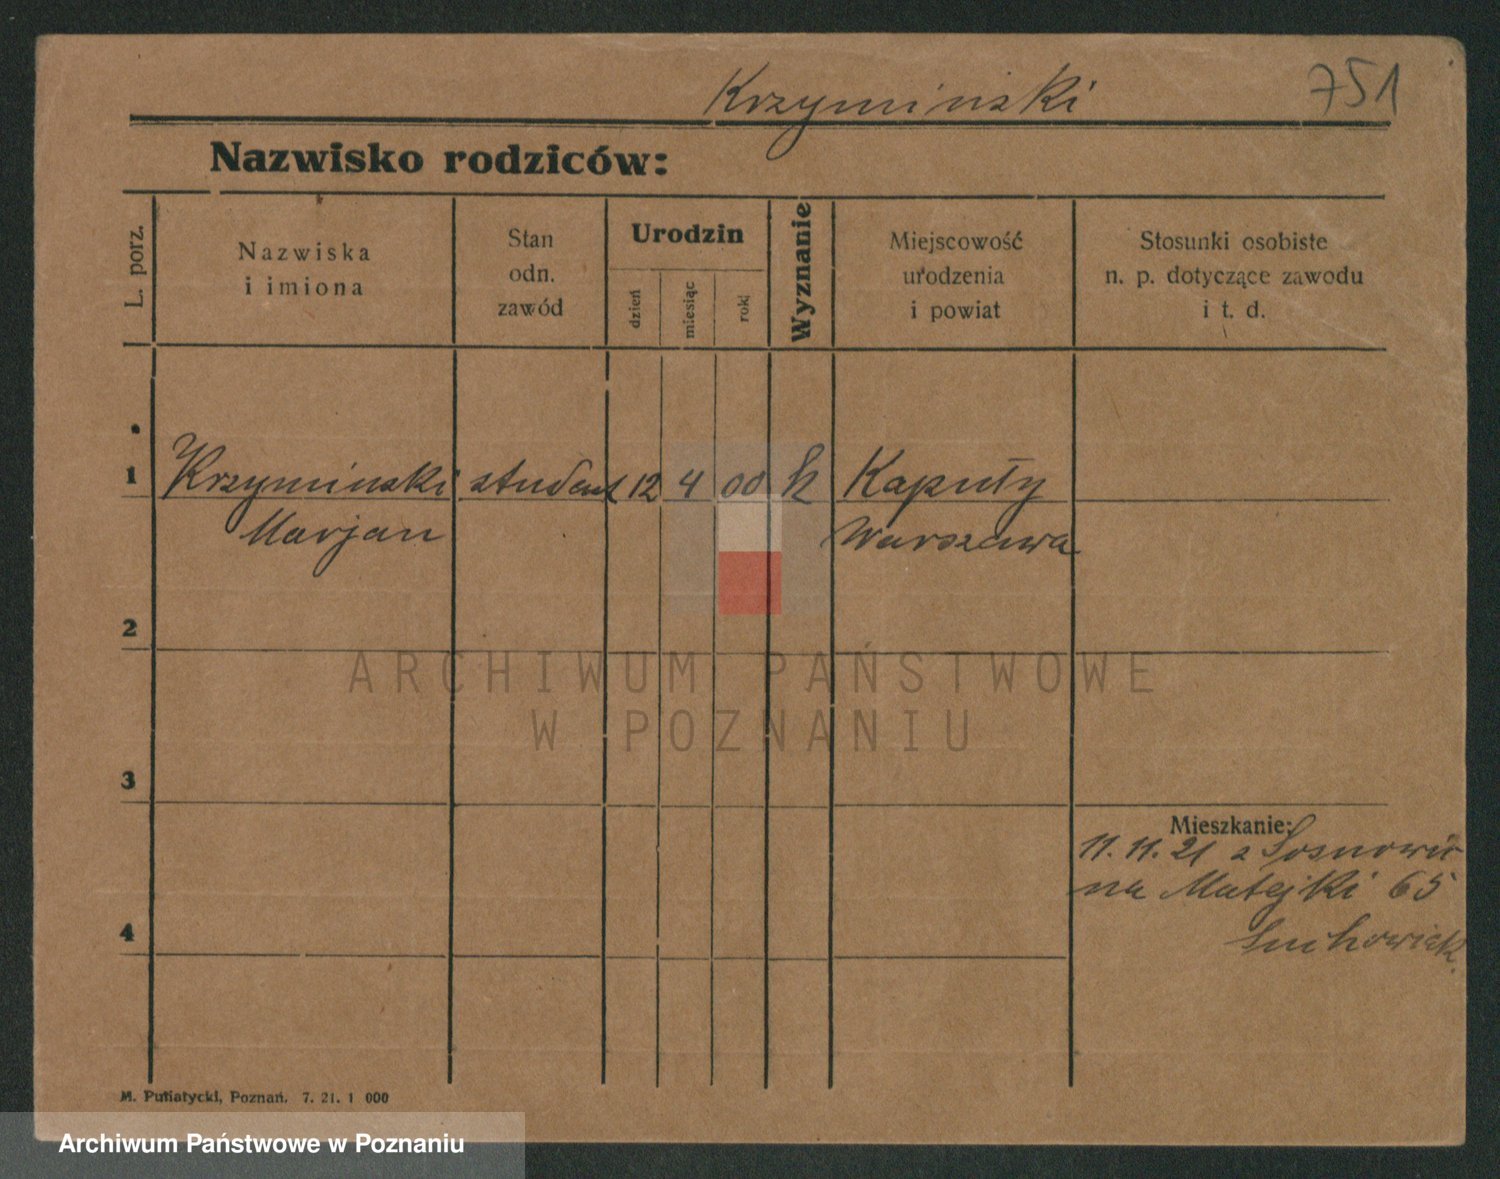 Krzyminski 751
Nazwisko rodziców:
L. porz.
Nazwiska
i imiona
Stan
odn.
zawód
Urodzin
dzień
miesiąc
rok
Wyznanie
Miejscowość
urodzenia
i powiat
Stosunki osobiste
n. p. dotyczące zawodu
i t. d.
1 Krzyminski student 12 4 00 k Kaputy
Marjan Warszawa
2
ARCHIWUM PAŃSTWOWE
W POZNANIU
3
Mieszkanie:
11. 11. 21 z Sosnowic
na Matejki 65
4
M. Putiatycki, Poznań. 7. 21. 1 000
Archiwum Państwowe w Poznaniu